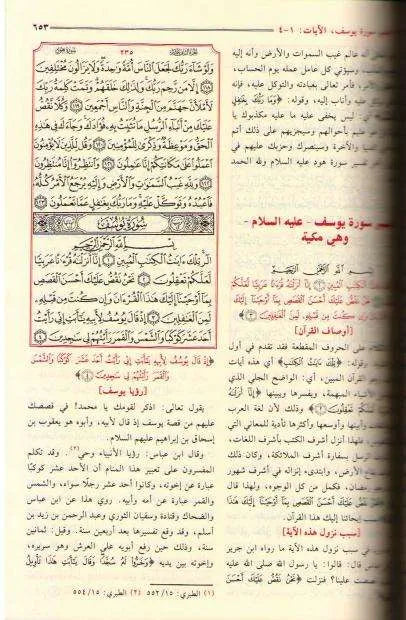 سورة يوسف، الآيات: ١-٤
٦٥٣
أنه عالم غيب السموات والأرض وأنه إليه
وسيؤتي كل عامل عمله يوم الحساب،
فأمر تعالى بعبادته والتوكل عليه، فإنه
عليه وأناب إليه، وقوله: ﴿وَمَا رَبُّكَ بِغَٰفِلٍ
ليس يخفى عليه ما عليه مكذبوك يا
عليم بأحوالهم وسيجزيهم على ذلك أتم
والآخرة وسينصرك وحزبك عليهم في
سورة هود عليه السلام ولله الحمد
سورة يوسف - عليه السلام -
وهي مكية
بسم الله الرحمن الرحيم
الْكِتَٰبِ الْمُبِينِ ﴿١﴾ إِنَّآ أَنزَلْنَٰهُ قُرْءَٰنًا عَرَبِيًّا لَّعَلَّكُمْ
نَحْنُ نَقُصُّ عَلَيْكَ أَحْسَنَ الْقَصَصِ بِمَآ أَوْحَيْنَآ إِلَيْكَ
وَإِن كُنتَ مِن قَبْلِهِۦ لَمِنَ الْغَٰفِلِينَ ﴿٣﴾
[أوصاف القرآن]
على الحروف المقطعة فقد تقدم في أول
وقوله: ﴿تِلْكَ ءَايَٰتُ الْكِتَٰبِ﴾ أي هذه آيات
القرآن المبين، أي: الواضح الجلي الذي
الأشياء المبهمة، ويفسرها ويبينها ﴿إِنَّآ أَنزَلْنَٰهُ
﴿٢﴾ وذلك لأن لغة العرب
وأبينها وأوسعها وأكثرها تأدية للمعاني التي
فلهذا أنزل أشرف الكتب بأشرف اللغات،
الرسل بسفارة أشرف الملائكة، وكان ذلك
بقاع الأرض، وابتدىء إنزاله في أشرف شهور
رمضان، فكمل من كل الوجوه، ولهذا قال
نَقُصُّ عَلَيْكَ أَحْسَنَ الْقَصَصِ بِمَآ أَوْحَيْنَآ إِلَيْكَ هَٰذَا
إيحائنا إليك هذا القرآن
[سبب نزول هذه الآية]
في سبب نزول هذه الآية ما رواه ابن جرير
قال: قالوا: يا رسول الله
علينا؟ فنزلت ﴿نَحْنُ نَقُصُّ عَلَيْكَ أَحْسَنَ
٢٣٥
وَلَوْ شَآءَ رَبُّكَ لَجَعَلَ النَّاسَ أُمَّةً وَٰحِدَةً وَلَا يَزَالُونَ مُخْتَلِفِينَ
﴿١١٨﴾ إِلَّا مَن رَّحِمَ رَبُّكَ وَلِذَٰلِكَ خَلَقَهُمْ وَتَمَّتْ كَلِمَةُ رَبِّكَ
لَأَمْلَأَنَّ جَهَنَّمَ مِنَ الْجِنَّةِ وَالنَّاسِ أَجْمَعِينَ ﴿١١٩﴾ وَكُلًّا نَّقُصُّ
عَلَيْكَ مِنْ أَنۢبَآءِ الرُّسُلِ مَا نُثَبِّتُ بِهِۦ فُؤَادَكَ وَجَآءَكَ فِى هَٰذِهِ
الْحَقُّ وَمَوْعِظَةٌ وَذِكْرَىٰ لِلْمُؤْمِنِينَ ﴿١٢٠﴾ وَقُل لِّلَّذِينَ لَا يُؤْمِنُونَ
اعْمَلُوا۟ عَلَىٰ مَكَانَتِكُمْ إِنَّا عَٰمِلُونَ ﴿١٢١﴾ وَانتَظِرُوٓا۟ إِنَّا مُنتَظِرُونَ
﴿١٢٢﴾ وَلِلَّهِ غَيْبُ السَّمَٰوَٰتِ وَالْأَرْضِ وَإِلَيْهِ يُرْجَعُ الْأَمْرُ كُلُّهُۥ
فَاعْبُدْهُ وَتَوَكَّلْ عَلَيْهِ وَمَا رَبُّكَ بِغَٰفِلٍ عَمَّا تَعْمَلُونَ ﴿١٢٣﴾
سُورَةُ يُوسُفَ
بِسْمِ اللَّهِ الرَّحْمَٰنِ الرَّحِيمِ
الٓر تِلْكَ ءَايَٰتُ الْكِتَٰبِ الْمُبِينِ ﴿١﴾ إِنَّآ أَنزَلْنَٰهُ قُرْءَٰنًا عَرَبِيًّا
لَّعَلَّكُمْ تَعْقِلُونَ ﴿٢﴾ نَحْنُ نَقُصُّ عَلَيْكَ أَحْسَنَ الْقَصَصِ
بِمَآ أَوْحَيْنَآ إِلَيْكَ هَٰذَا الْقُرْءَانَ وَإِن كُنتَ مِن قَبْلِهِۦ
لَمِنَ الْغَٰفِلِينَ ﴿٣﴾ إِذْ قَالَ يُوسُفُ لِأَبِيهِ يَٰٓأَبَتِ إِنِّى رَأَيْتُ
أَحَدَ عَشَرَ كَوْكَبًا وَالشَّمْسَ وَالْقَمَرَ رَأَيْتُهُمْ لِى سَٰجِدِينَ ﴿٤﴾
﴿إِذْ قَالَ يُوسُفُ لِأَبِيهِ يَٰٓأَبَتِ إِنِّى رَأَيْتُ أَحَدَ عَشَرَ كَوْكَبًا وَالشَّمْسَ
وَالْقَمَرَ رَأَيْتُهُمْ لِى سَٰجِدِينَ ﴿٤﴾
[رؤيا يوسف]
يقول تعالى: اذكر لقومك يا محمد! في قصصك
عليهم من قصة يوسف إذ قال لأبيه، وأبوه هو يعقوب بن
إسحاق بن إبراهيم عليهم السلام.
وقال ابن عباس: رؤيا الأنبياء وحي(٢). وقد تكلم
المفسرون على تعبير هذا المنام أن الأحد عشر كوكبًا
عبارة عن إخوته، وكانوا أحد عشر رجلًا سواه، والشمس
والقمر عبارة عن أمه وأبيه. روي هذا عن ابن عباس
والضحاك وقتادة وسفيان الثوري وعبد الرحمن بن زيد بن
أسلم، وقد وقع تفسيرها بعد أربعين سنة.. وقيل: ثمانين
سنة، وذلك حين رفع أبويه على العرش وهو سريره،
وإخوته بين يديه ﴿وَخَرُّوا۟ لَهُۥ سُجَّدًا وَقَالَ يَٰٓأَبَتِ هَٰذَا تَأْوِيلُ
(١) الطبري: ٥٥٢/١٥ (٢) الطبري: ٥٥٤/١٥